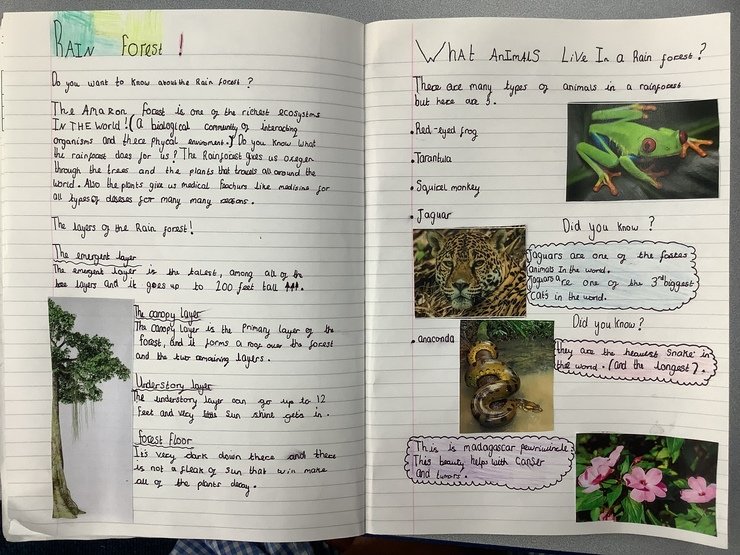 RAIN forest !
Do you want to know about the Rain forest ?
The Amazon forest is one of the richest ecosystems
IN THE World ! (a biological community of interacting
organisms and there phycal enviroment.) Do you know what
the rainforest does for us? The Rainforest gives us oxegen
through the trees and the plants that travels all around the
world. Also the plants give us medical like medisine for
all types of deseses for many many reasons.
The layers of the Rain forest!
The emergent layer
The emergent layer is the talest, among all of the
layers and it goes up to 200 feet tall
The canopy layer
The canopy layer is the Primary layer of the
forest, and it forms a roof over the forest
and the two remaining layers.
Understory layer
The understory layer can go up to 12
feet and very Sun shine gets in.
forest floor
It's very dark down there and there
is not a fleak of sun that make
all of the plants decay.
What AniMAlS Live In a Rain forest ?
There are many types of animals in a rainforest
but here are 5.
• Red-eyed frog
• Tarantula
• Squirel monkey
• Jaguar
Did you know ?
Jaguars are one of the fastes
animals In the world.
Jaguars are one of the 3rd biggest
cats in the world.
• anaconda
Did you know?
they are the heaviest snake in
the world. (and the longest).
This is madagascar
This beauty helps with canser
and tumors.